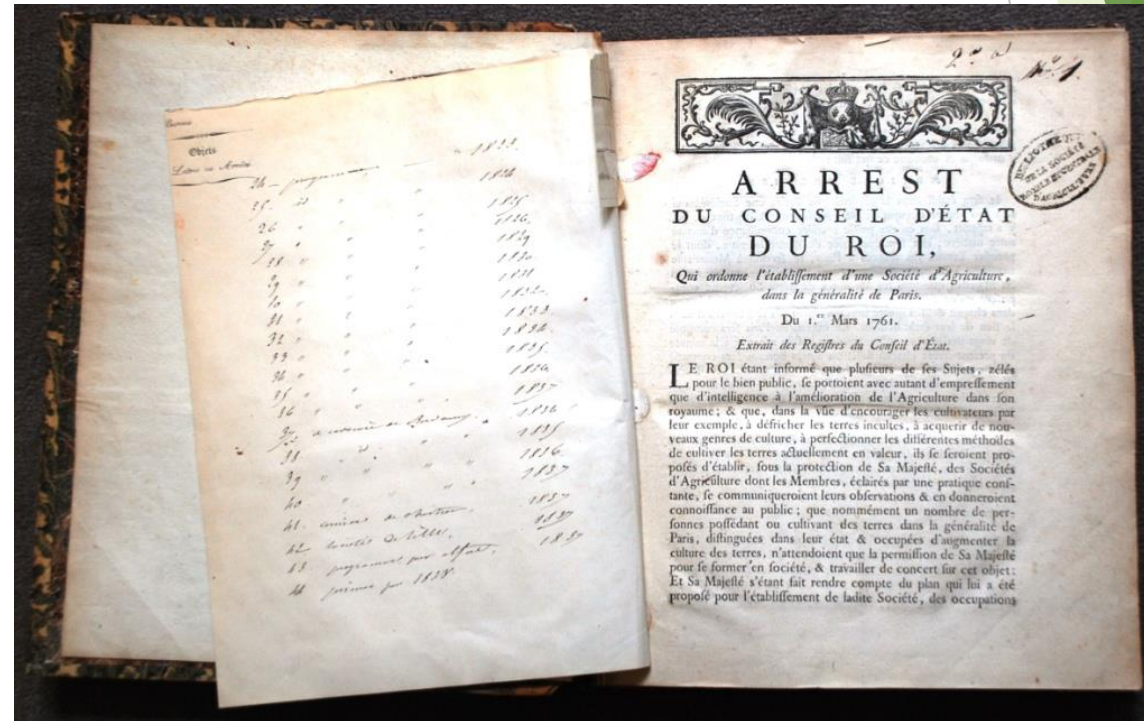 Bureau
Objets
24 programme 1823.
25. id 1824
26 " " 1825
27 " " 1826.
28 " " 1829
29 " " 1830
30 " " 1831
31 " " 1832.
32 " " 1833
33 " " 1834.
34 " " 1835.
35 " " 1836
36 " " 1837
37 1836
38 id. 1835
39 " " " " 1836.
40 " " " " 1837
41. 1837
42 1837
43 programme pour 1837
44 pour 1838.
2.e
N.o 1.
BIBLIOTHEQUE
DE LA SOCIÉTÉ
ROYALE ET CENTRALE
D'AGRICULTURE
ARREST
DU CONSEIL D'ÉTAT
DU ROI,
Qui ordonne l'établiſſement d'une Société d'Agriculture,
dans la généralité de Paris.
Du 1.er Mars 1761.
Extrait des Regiſtres du Conſeil d'État.
LE ROI étant informé que pluſieurs de ſes Sujets, zélés
pour le bien public, ſe portoient avec autant d'empreſſement
que d'intelligence à l'amélioration de l'Agriculture dans ſon
royaume; & que, dans la vûe d'encourager les cultivateurs par
leur exemple, à défricher les terres incultes, à acquerir de nou-
veaux genres de culture, à perfectionner les différentes méthodes
de cultiver les terres actuellement en valeur, ils ſe ſeroient pro-
poſés d'établir, ſous la protection de Sa Majeſté, des Sociétés
d'Agriculture dont les Membres, éclairés par une pratique conſ-
tante, ſe communiqueroient leurs obſervations & en donneroient
connoiſſance au public; que nommément un nombre de per-
ſonnes poſſédant ou cultivant des terres dans la généralité de
Paris, diſtinguées dans leur état & occupées d'augmenter la
culture des terres, n'attendoient que la permiſſion de Sa Majeſté
pour ſe former en ſociété, & travailler de concert ſur cet objet:
Et Sa Majeſté s'étant fait rendre compte du plan qui lui a été
propoſé pour l'établiſſement de ladite Société, des occupations